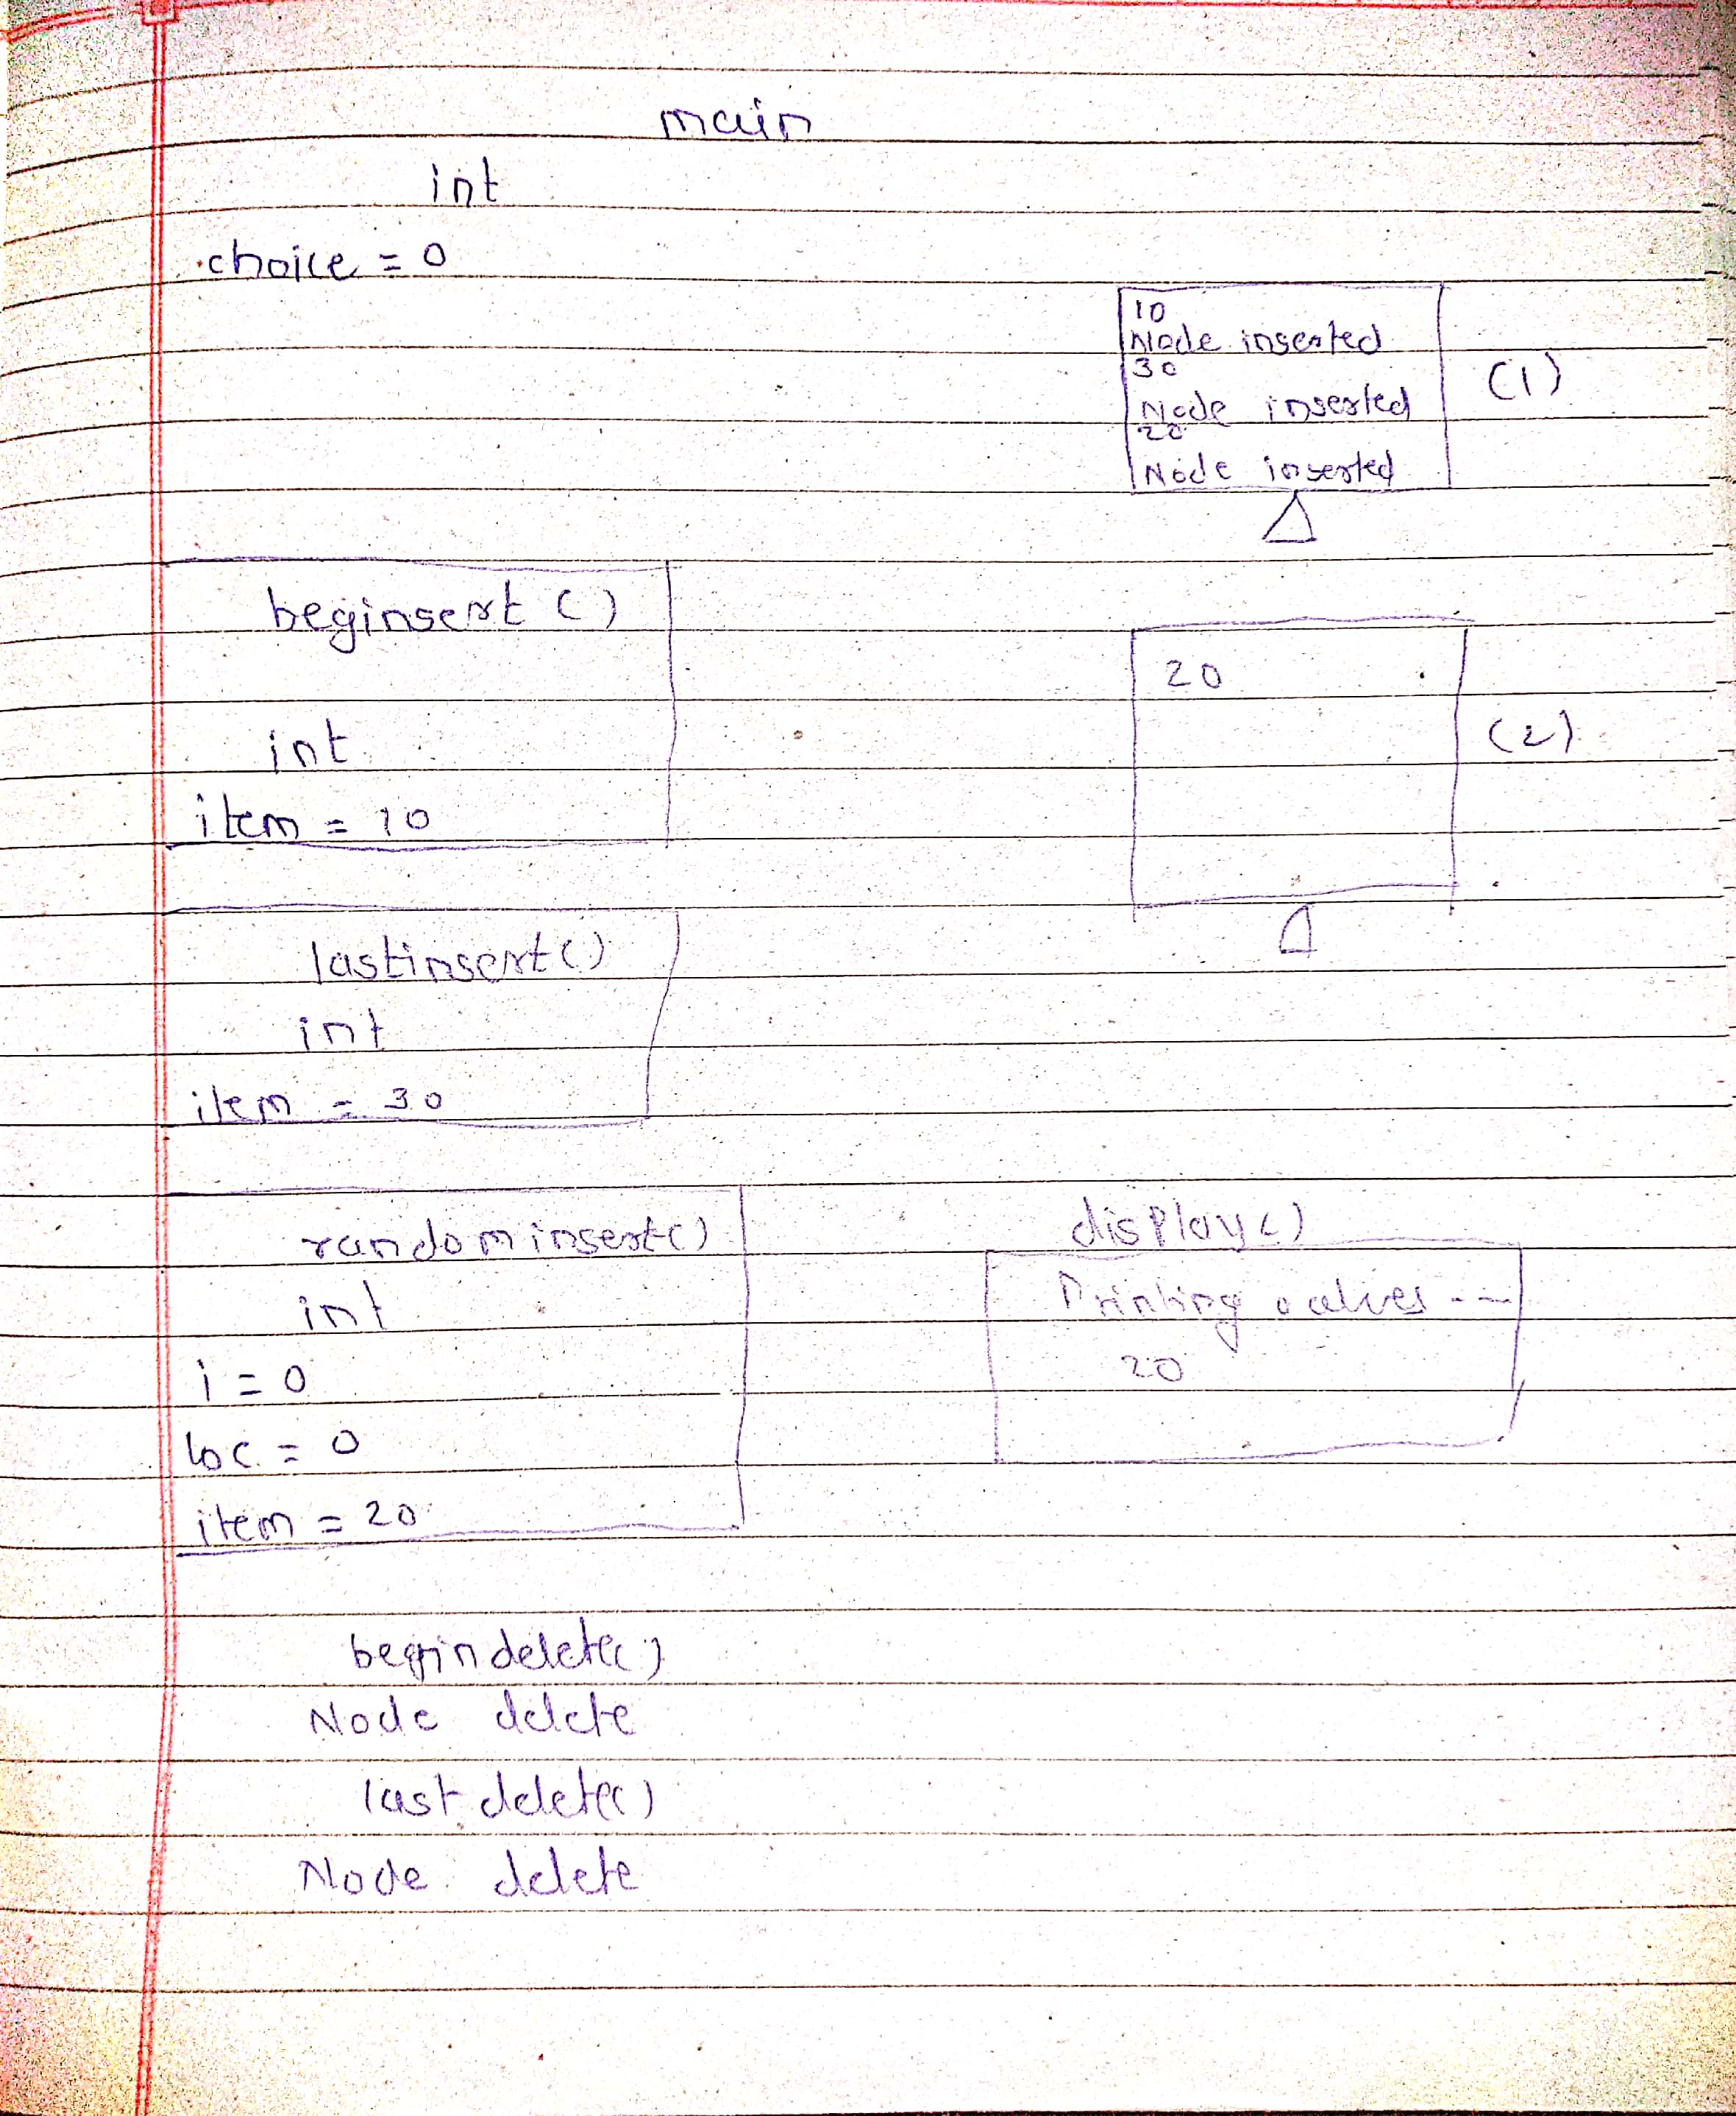 main
int
choice = 0
10
Node inserted
30
Node inserted
20
Node inserted
(1)
beginsert ()
int
item = 10
20
(2)
lastinsert()
int
item = 30
randominsert()
int
i = 0
loc = 0
item = 20
display()
Printing values ---
20
begindelete()
Node delete
last delete()
Node delete